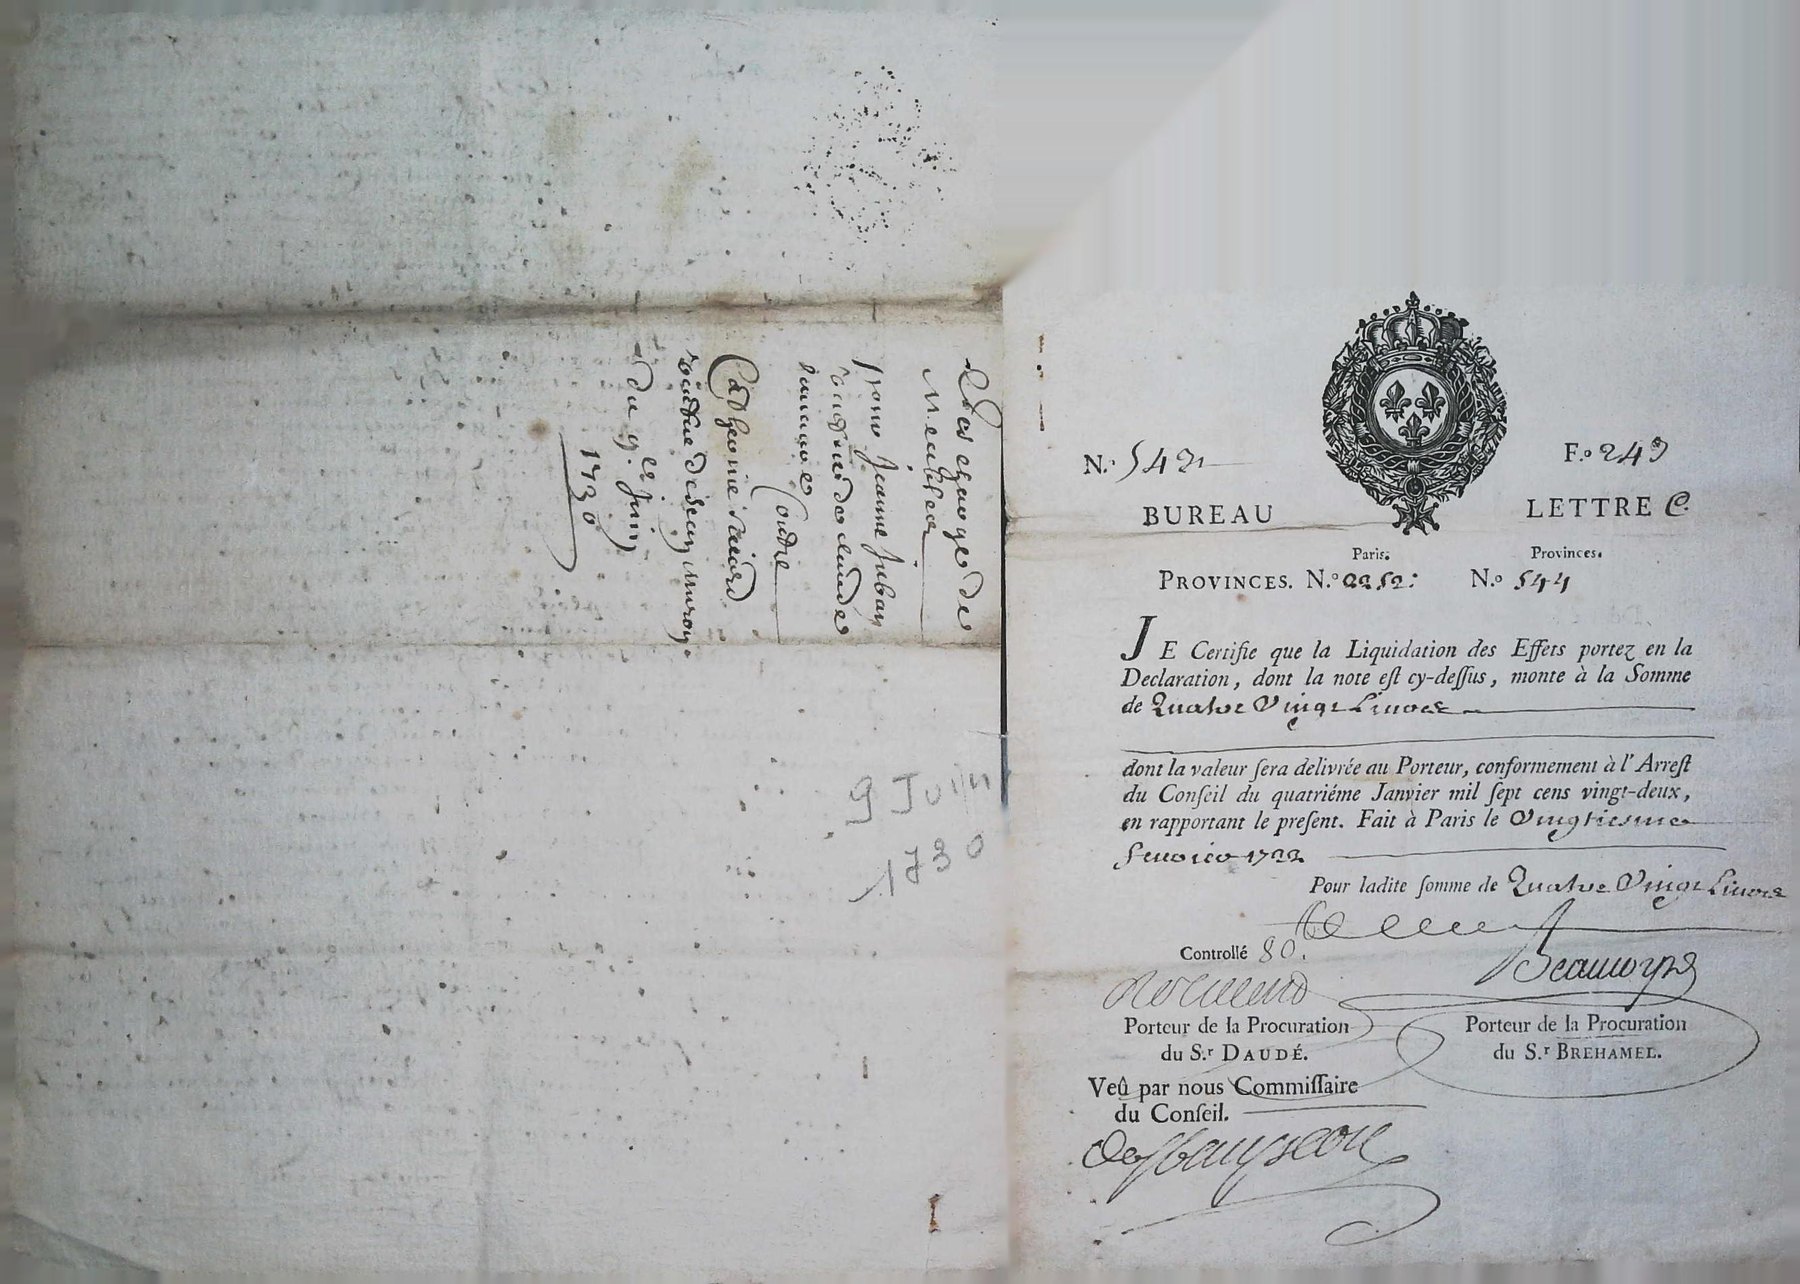 descharge de
Meubles
pour Jeanne Juban
Contre
Catherine
du 9.e Juin
1730
9 Juin
1730
N.o 542
F.o 249
BUREAU
LETTRE C.
Paris.
Provinces.
PROVINCES. N.o 2252:
N.o 544
JE Certifie que la Liquidation des Effets portez en la
Declaration, dont la note est cy-dessus, monte à la Somme
de Quatre Vingt Livres
dont la valeur sera delivrée au Porteur, conformement à l'Arrest
du Conseil du quatriéme Janvier mil sept cens vingt-deux,
en rapportant le present. Fait à Paris le Vingtiesme
1722
Pour ladite somme de Quatre Vingt Livres
Controllé 80.
Porteur de la Procuration
du S.r DAUDÉ.
Porteur de la Procuration
du S.r BREHAMEL.
Veû par nous Commissaire
du Conseil.